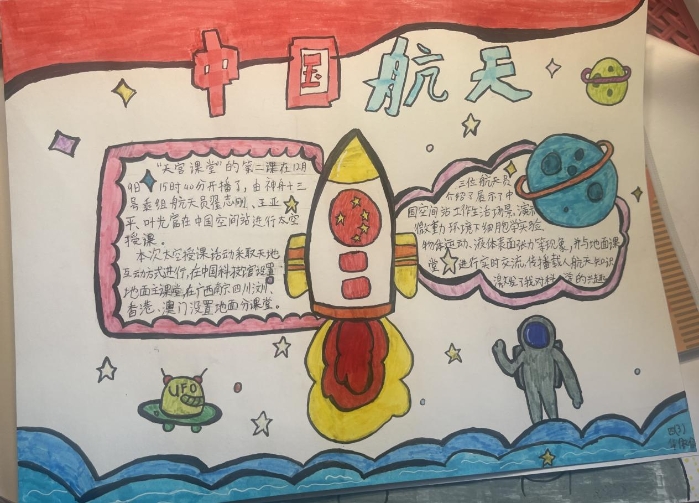 中国航天
"天宫课堂"的第二课在12月
9日15时40分开播了,由神舟十三
号乘组航天员翟志刚、王亚
平、叶光富在中国空间站进行太空
授课。
本次太空授课活动采取天地
互动方式进行,在中国科技馆设置
地面主课堂,在广西南宁四川汶川、
香港、澳门设置地面分课堂。
三位航天员
介绍了展示了中
国空间站工作生活场景,演示
微重力环境下细胞学实验、
物体运动、液体表面张力等现象,并与地面课
堂进行实时交流,传播载人航天知识
激发了我对科 的兴趣
UFO